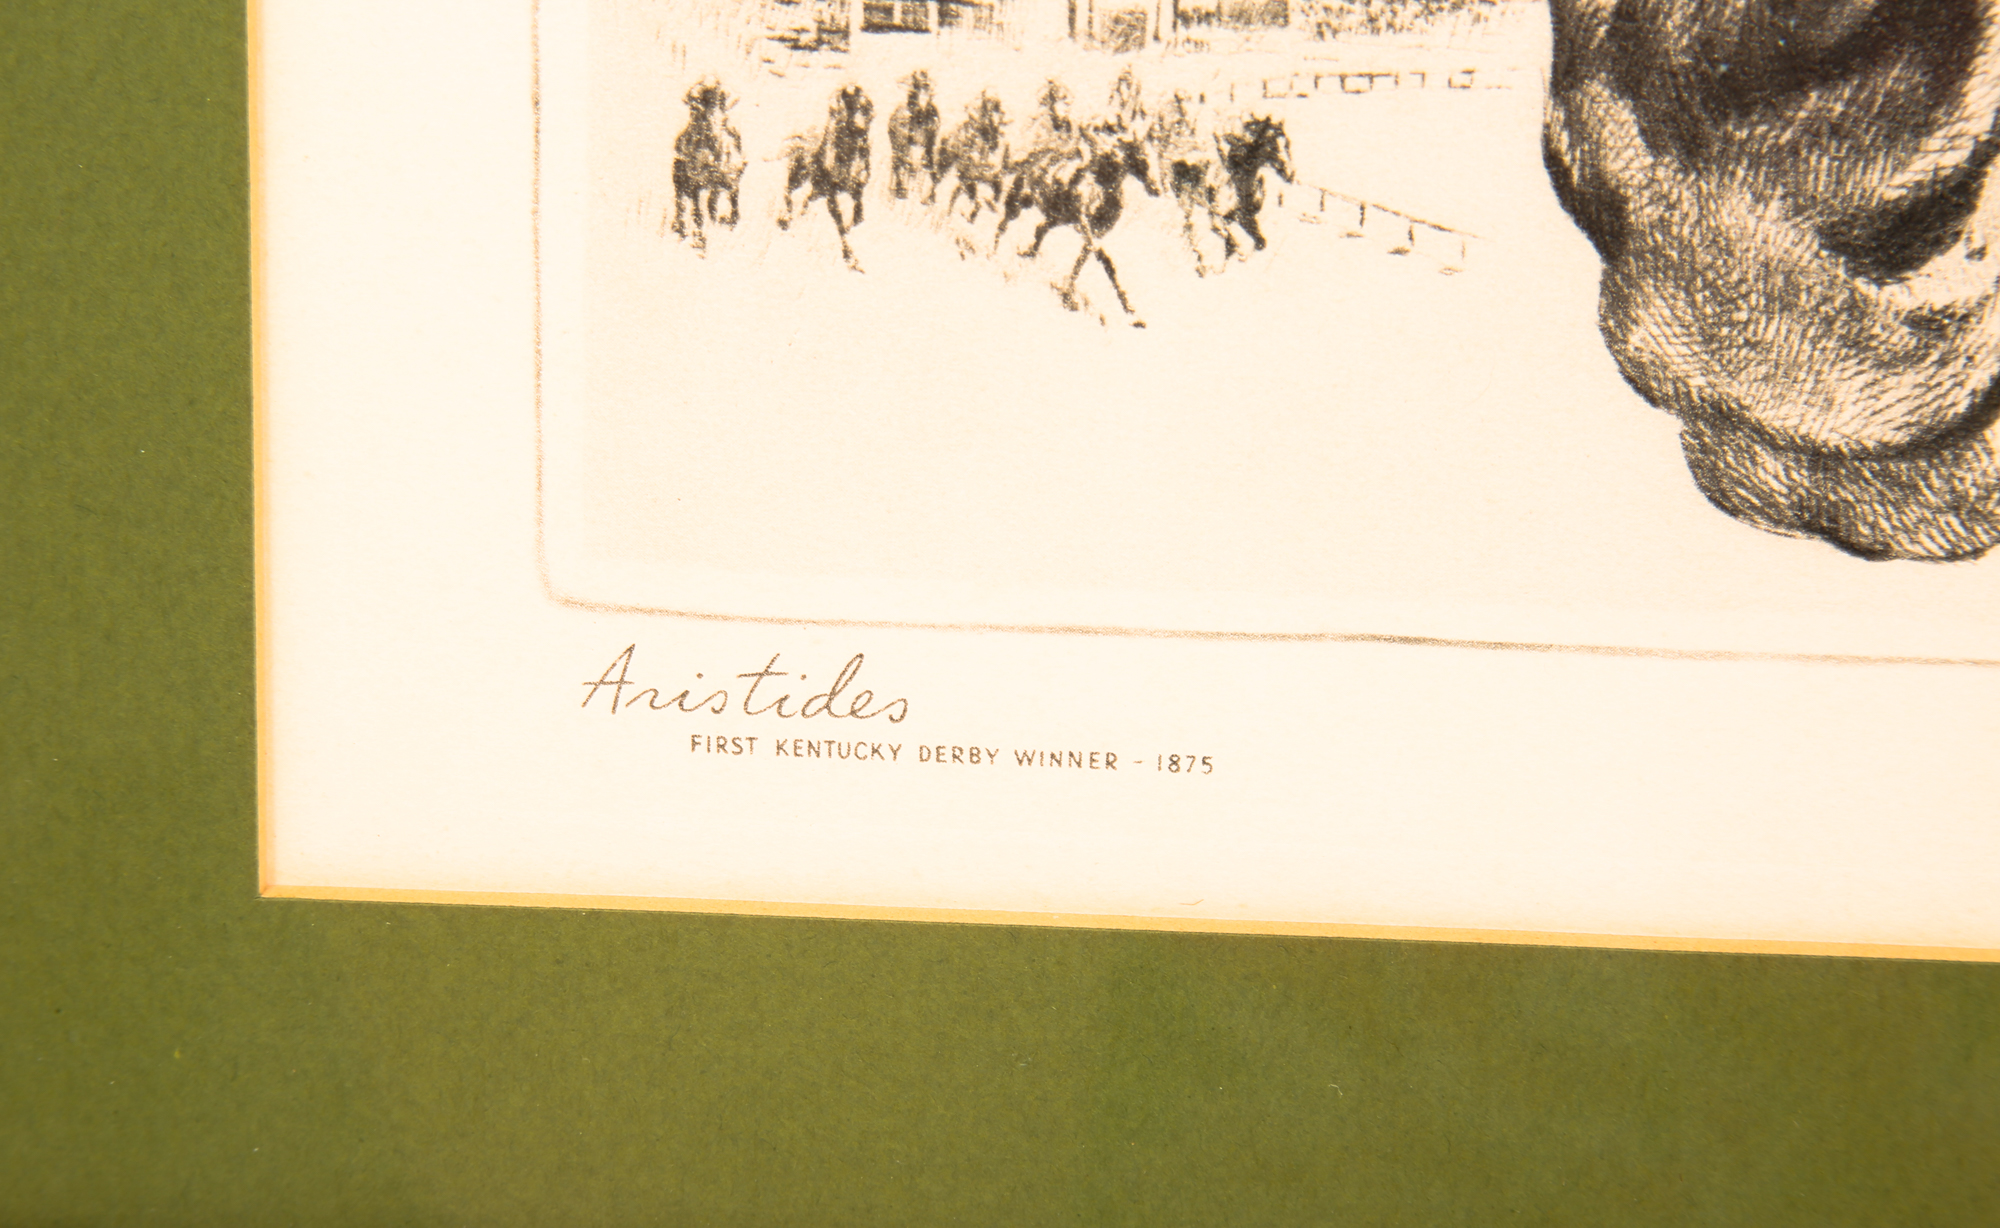 Aristides
FIRST KENTUCKY DERBY WINNER - 1875